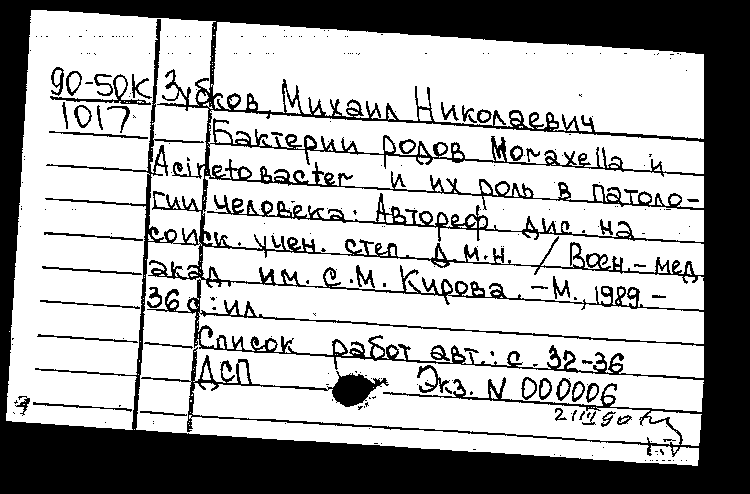 90-50К Зубков, Михаил Николаевич
1017
Бактерии родов Moraxella и
Acinetobacter и их роль в патоло-
гии человека: Автореф. дис. на
соиск. учен. степ. д.м.н. / Воен.-мед.
акад. им. С.М. Кирова. - М., 1989. -
36 с.: ил.
Список работ авт.: с. 32-36
ДСП Экз. N 000006
21 III 90